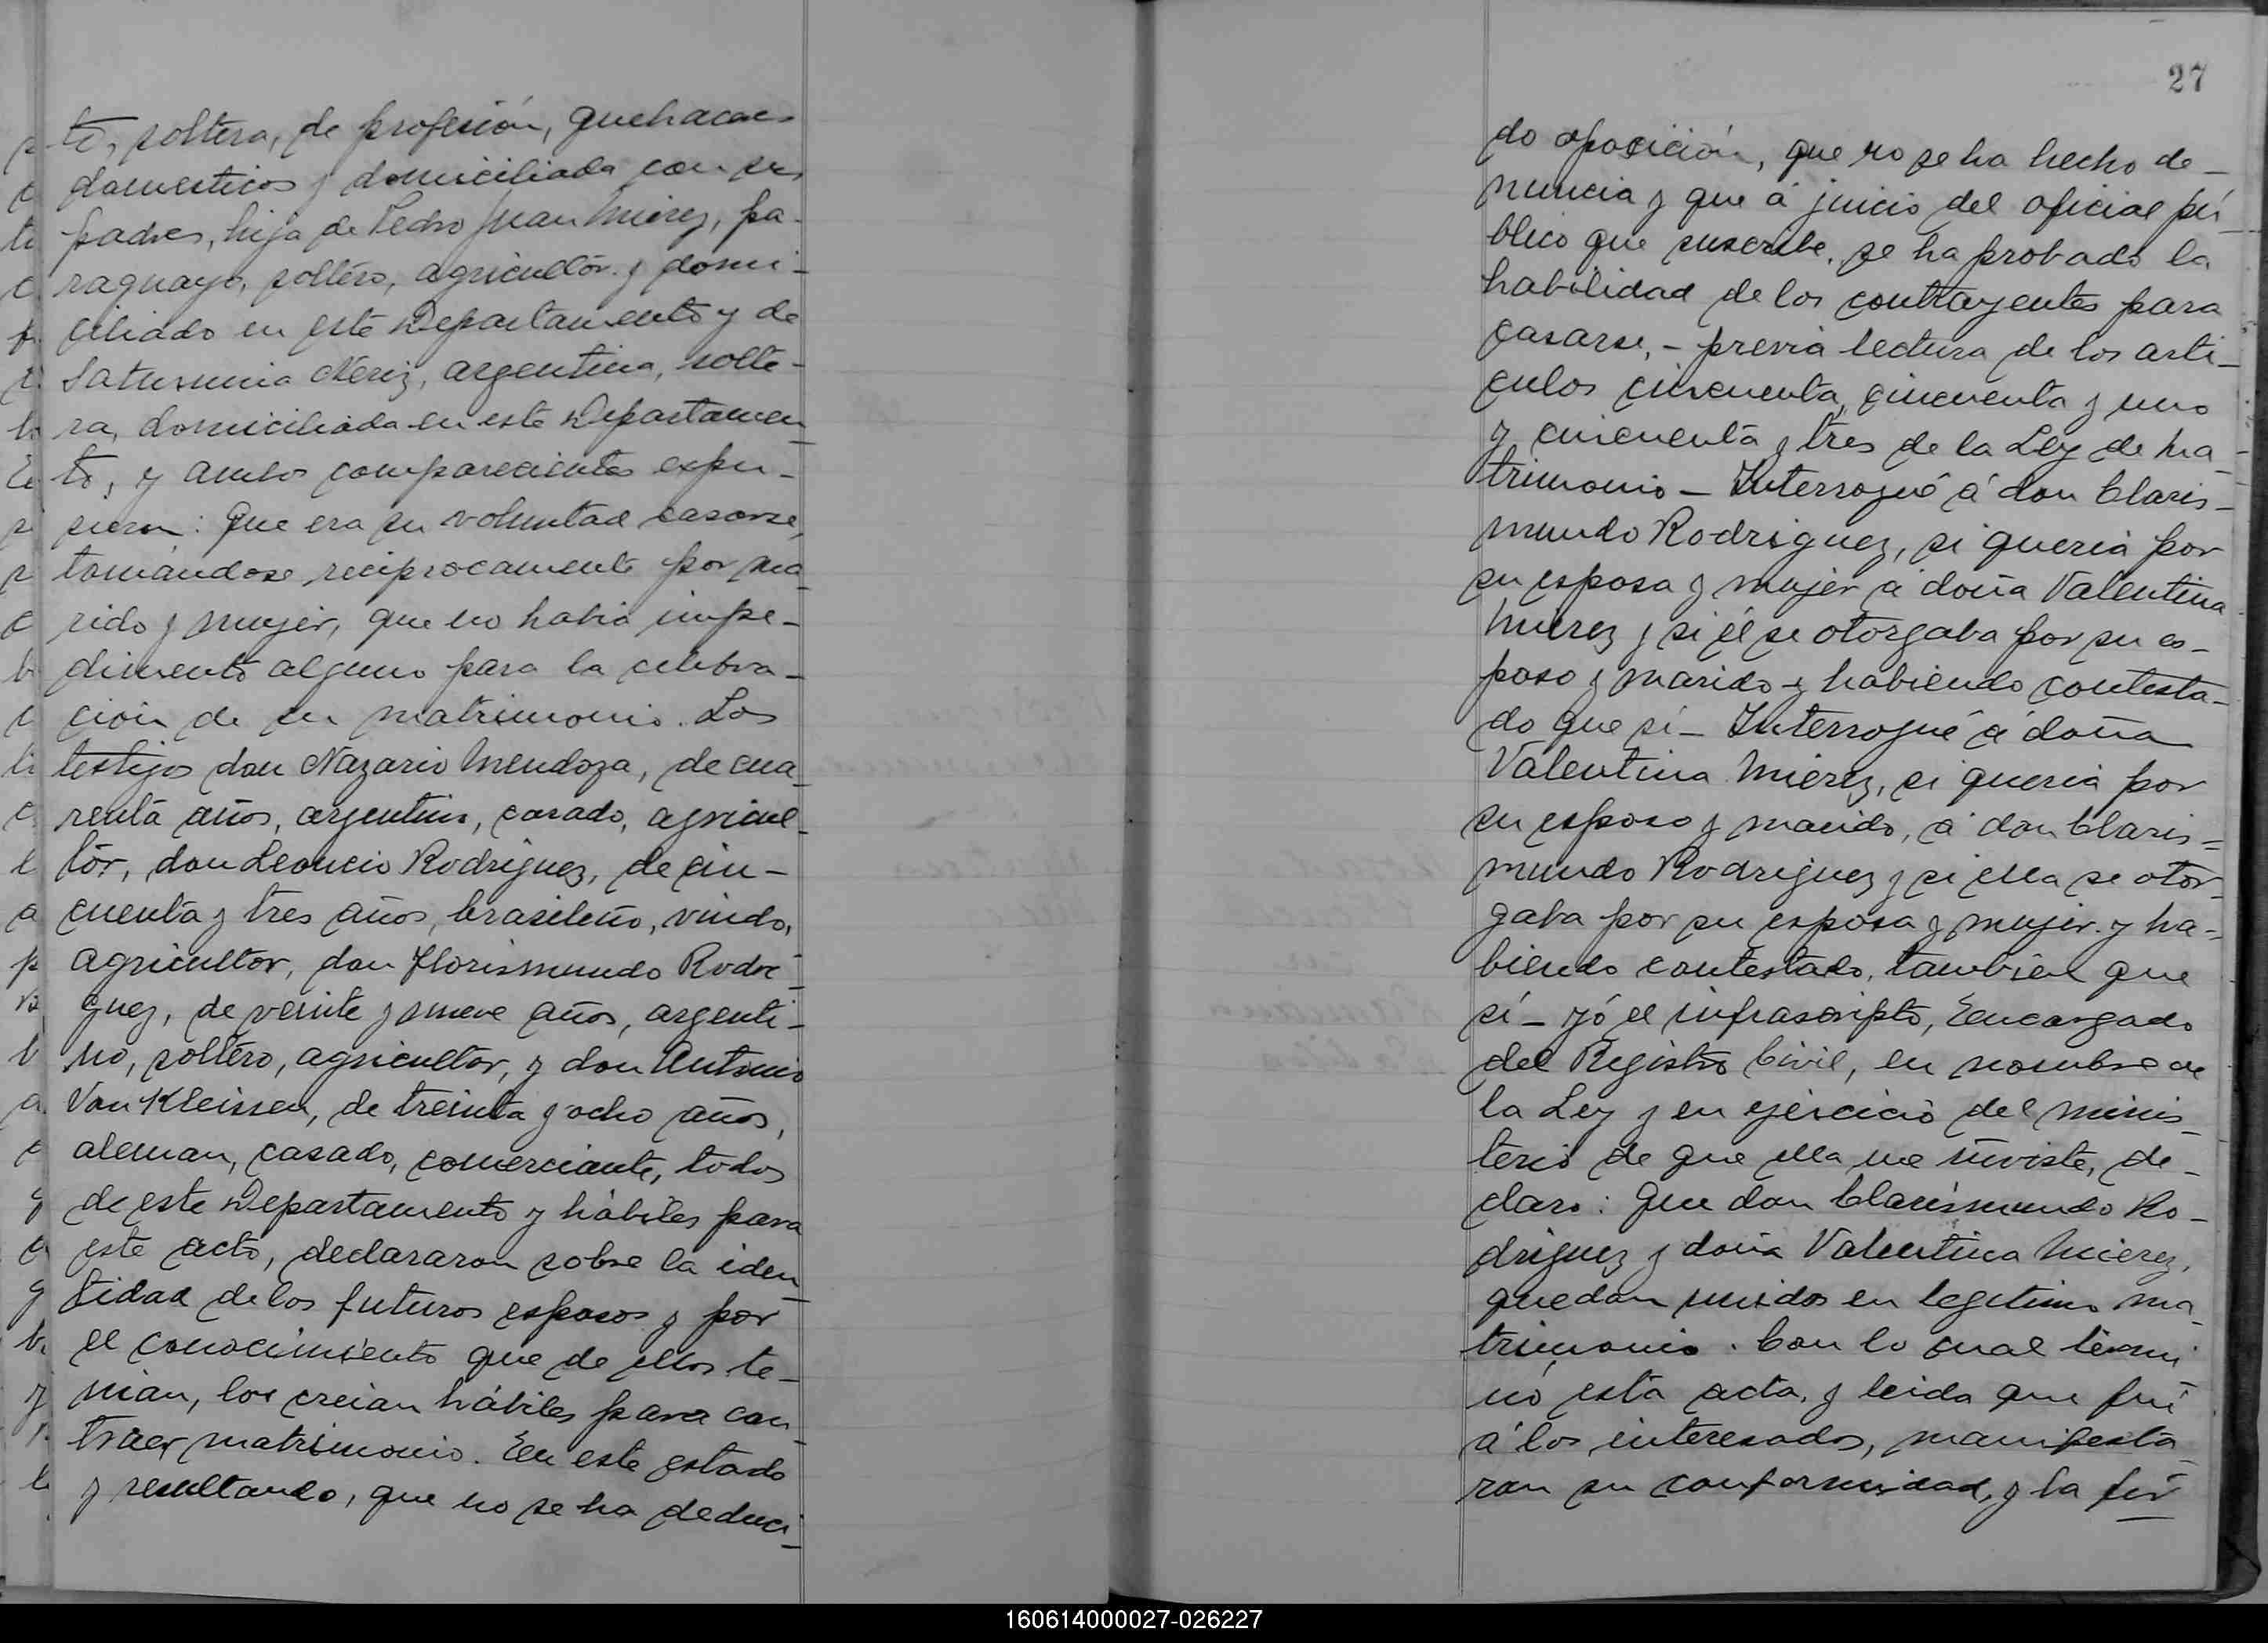 te, soltera, de profesión, quehaceres
domesticos y domiciliada con sus
padres, hija de Pedro Juan Mierez, pa-
raguayo, soltero, agricultor y domi-
ciliado en este Departamento y de
Saturnina Neriz, argentina, solte-
ra, domiciliada en este Departamen
to, y ambos comparecientes expu-
sieron: Que era su voluntad casarse,
tomándose, reciprocamente por ma
rido y mujer, que no habia impe-
dimento alguno para la celebra-
ción de su matrimonio. Los
testigos don Nazario Mendoza, de cua
renta años, argentino, casado, agricul
tor, don Leoncio Rodriguez, de cin-
cuenta y tres años, brasileño, viudo,
agricultor, don Florismundo Rodri
guez, de veinte y nueve años, argenti-
no, soltero, agricultor, y don Antonio
Van Kleissen, de treinta y ocho años,
aleman, casado, comerciante, todos
de este Departamento y hábiles para
este acto, declararon sobre la iden
tidad de los futuros esposos y por
el conocimiento que de ellos te-
nian, los creian hábiles para con
traer matrimonio. En este estado
y resultando, que no se ha deduci
27
do oposición, que no se ha hecho de-
nuncia y que á juicio del oficial pú
blico que suscribe, se ha probado la
habilidad de los contrayentes para
casarse, - previa lectura de los arti-
culos cincuenta, cincuenta y uno
y cincuenta y tres de la Ley de Ma
trimonio - Interrogué á don Claris-
mundo Rodriguez, si queria por
su esposa y mujer á doña Valentina
Mierez y si él se otorgaba por su es-
poso y marido y habiendo contesta-
do que sí - Interrogué á doña
Valentina Mierez, si queria por
su esposo y marido, á don Claris=
mundo Rodriguez y si ella se otor
gaba por su esposa y mujer y ha=
biendo contestado, tambien que
sí - yó el infrascripto, Encargado
del Registro Civil, en nombre de
la Ley y en ejercicio del minis
terio de que ella me inviste, de-
claro: Que don Clarismundo Ro-
driguez y doña Valentina Mierez,
quedan unidos en legitimo ma
trimonio. Con lo cual termi
nó esta acta, y leida que fué
á los interesados, manifesta
ron su conformidad, y la fir
160614000027-026227